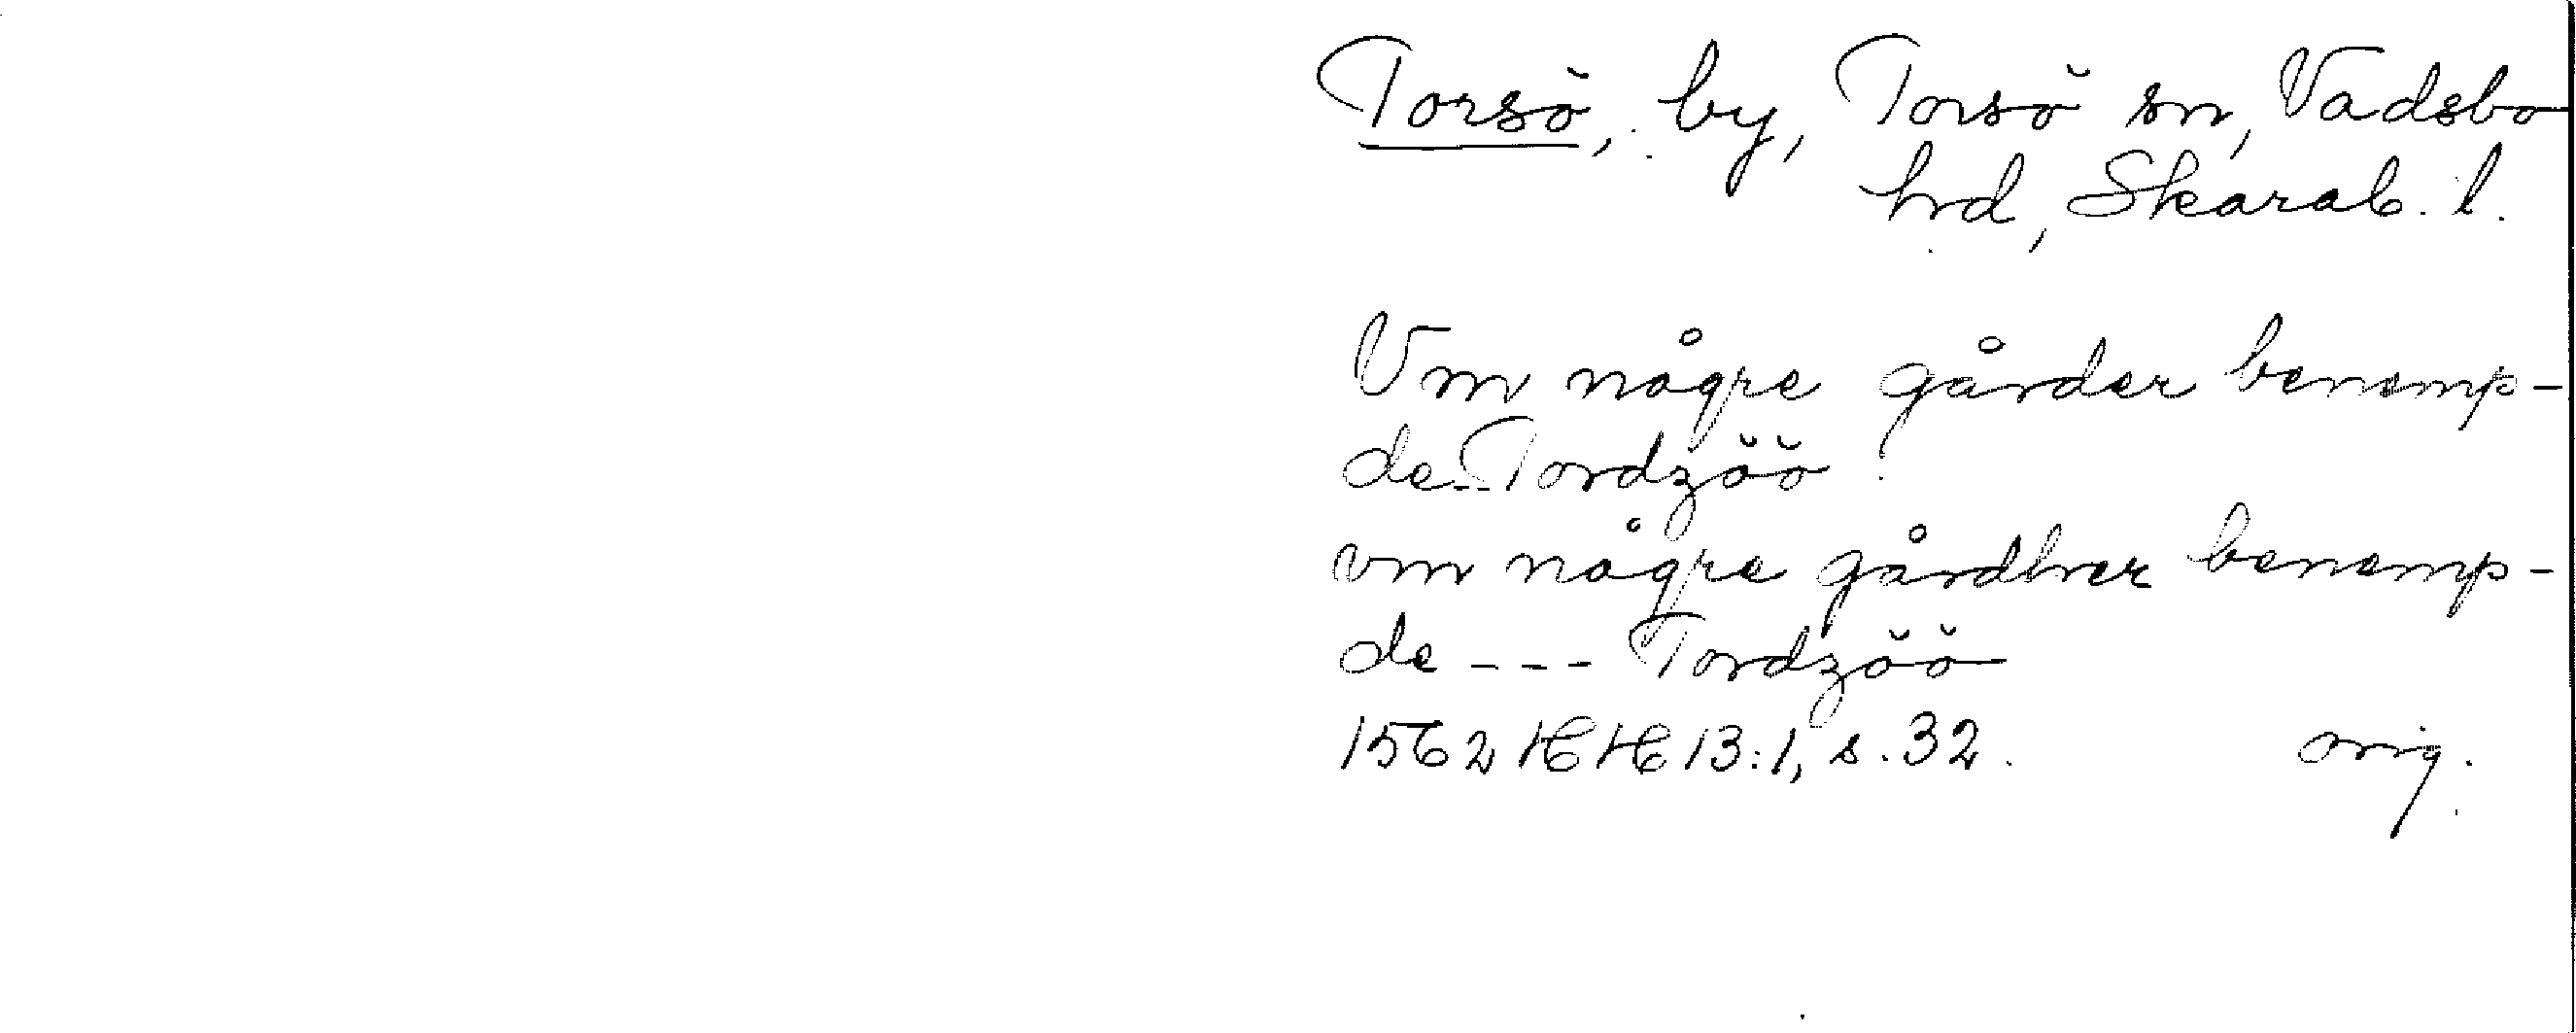 Torsö, by, Torsö sn, Vadsbo
hd, Skarab. l.
Vm någre gårder benemp-
de---Tordzöö
vm någre gårdher benemp-
de --- Tordzöö
1562 HH 13:1, s. 32. orig.